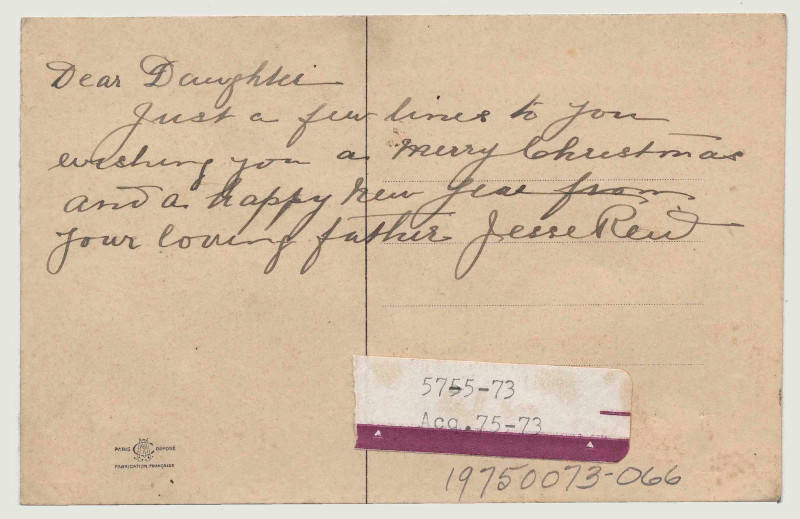 Dear Daughter
Just a few lines to you
wishing you a merry Christmas
and a happy New year from
your loving father Jesse
5755-73
Acq. 75-73
19750073-066
PARIS DÉPOSÉ
FABRICATION FRANÇAISE